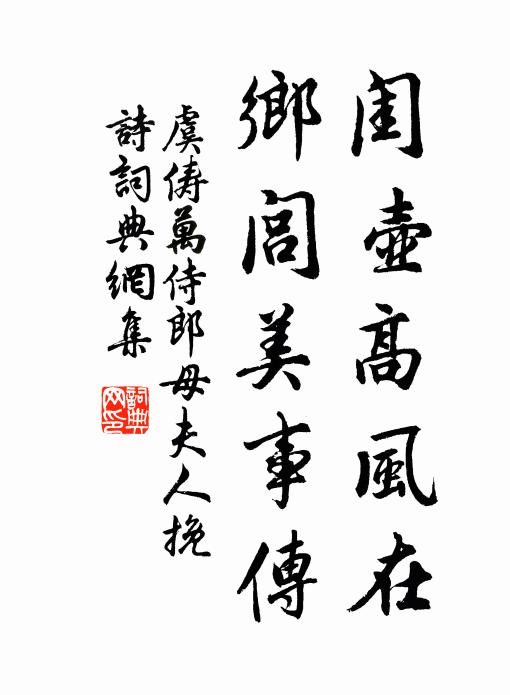 闺壼高風在
鄉閭美事傳
虞儔萬侍郎母夫人挽
詩詞典網集
詞典
网印